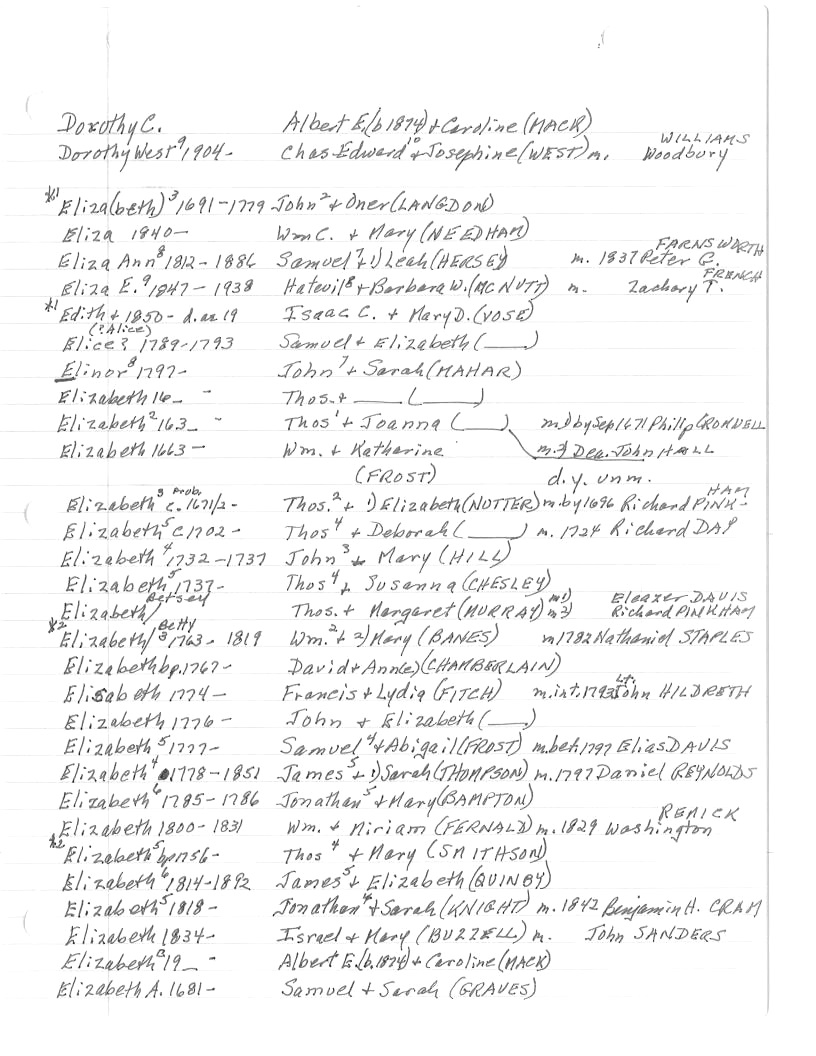 Dorothy C. Albert E. (b 1874) + Caroline (MACK)
Dorothy West⁹ 1904- Chas Edward¹⁰ + Josephine (WEST) m. Woodbury WILLIAMS
*1 Eliza(beth)³ 1691-1779 John² + Oner (LANGDON)
Eliza 1840- Wm C. + Mary (NEEDHAM)
Eliza Ann⁸ 1812-1886 Samuel⁷ + 1) Leah (HERSEY) m. 1837 Peter G. FARNSWORTH
Eliza E.⁹ 1847-1938 Hatevil⁸ + Barbara W. (MCNUTT) m. Zachary T. FRENCH
*1 Edith + 1850- d. ae 19 Isaac C. + Mary D. (VOSE)
(?Alice)
Elice? 1789-1793 Samuel + Elizabeth (___)
Elinor⁸ 1797- John⁷ + Sarah (MAHAR)
Elizabeth 16_ - Thos. + ___ (___)
Elizabeth² 163_ - Thos¹ + Joanna (___) m1) by Sep 1671 Philip CROMWELL
Elizabeth 1663- Wm. + Katharine m. 2) Dea. John HALL
(FROST) d. y. unm.
Elizabeth³ Prob. c. 1671/2- Thos.² + 1) Elizabeth (NUTTER) m. by 1696 Richard PINK-HAM
Elizabeth⁵ c 1702- Thos⁴ + Deborah (___) m. 1724 Richard DAY
Elizabeth⁴ 1732-1737 John³ + Mary (HILL)
Elizabeth⁵ 1737- Thos⁴ + Susanna (CHESLEY)
Elizabeth/Betsey Thos. + Margaret (MURRAY) m1) Eleazer DAVIS
m2) Richard PINKHAM
*2 Elizabeth/Betty³ 1763-1819 Wm.² + 2) Mary (BANES) m 1782 Nathaniel STAPLES
Elizabeth bp. 1767- David + Ann(e) (CHAMBERLAIN)
Elisabeth 1774- Francis + Lydia (FITCH) m. int. 1793 Lt. John HILDRETH
Elizabeth 1776- John + Elizabeth (___)
Elizabeth⁵ 1777- Samuel⁴ + Abigail (FROST) m. bef. 1797 Elias DAVIS
Elizabeth⁴ 1778-1851 James⁵ + 1) Sarah (THOMPSON) m. 1797 Daniel REYNOLDS
Elizabeth⁶ 1785-1786 Jonathan⁵ + Mary (BAMPTON)
Elizabeth 1800-1831 Wm. + Miriam (FERNALD) m. 1829 Washington REMICK
*2 Elizabeth⁵ bp 1756- Thos⁴ + Mary (SMITHSON)
Elizabeth⁶ 1814-1892 James⁵ + Elizabeth (QUINBY)
Elizabeth⁵ 1818- Jonathan⁴ + Sarah (KNIGHT) m. 1842 Benjamin H. CRAM
Elizabeth 1834- Israel + Mary (BUZZELL) m. John SANDERS
Elizabeth 19_ - Albert E. (b. 1874) + Caroline (MACK)
Elizabeth A. 1681- Samuel + Sarah (GRAVES)